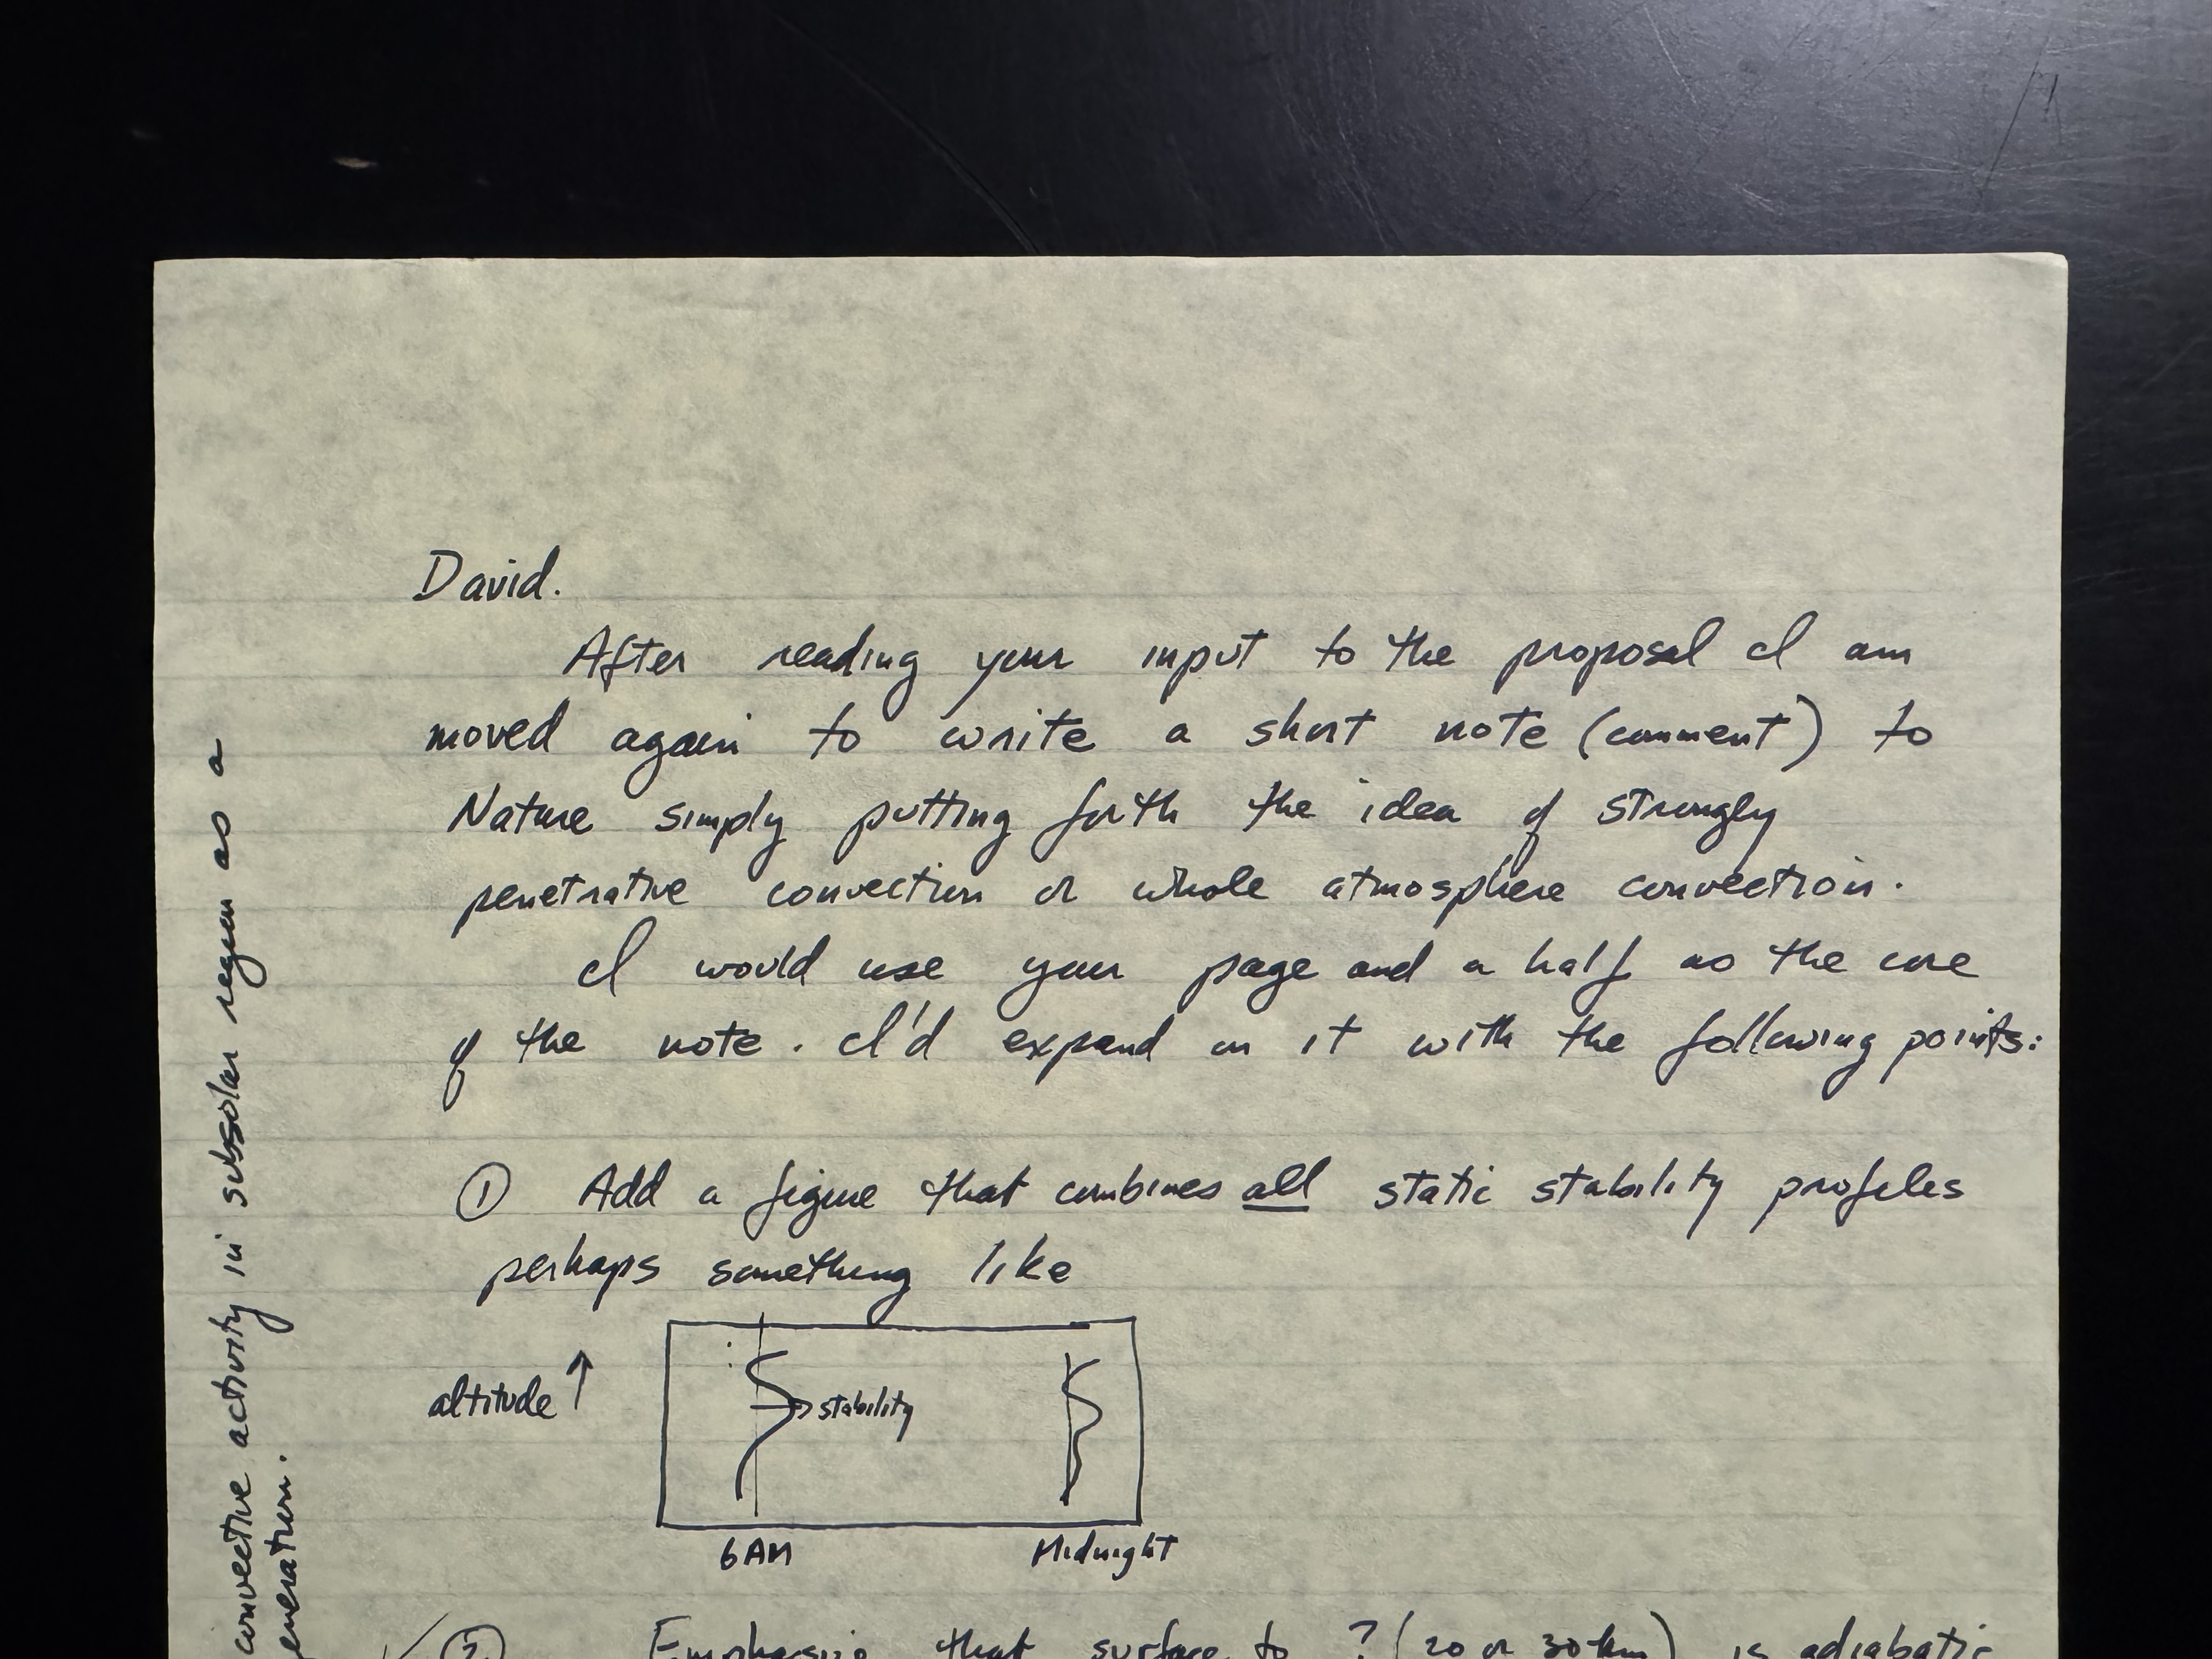 David.
After reading your input to the proposal I am
moved again to write a short note (comment) to
Nature simply putting forth the idea of strongly
penetrative convection or whole atmosphere convection.
I would use your page and a half as the core
of the note. I'd expand on it with the following points:
① Add a figure that combines all static stability profiles
perhaps something like
altitude ↑
stability
6AM
Midnight
✓ ② Emphasize that surface to ? (20 or 30 km) is adiabatic
convective activity in subsolar region as a
generation.